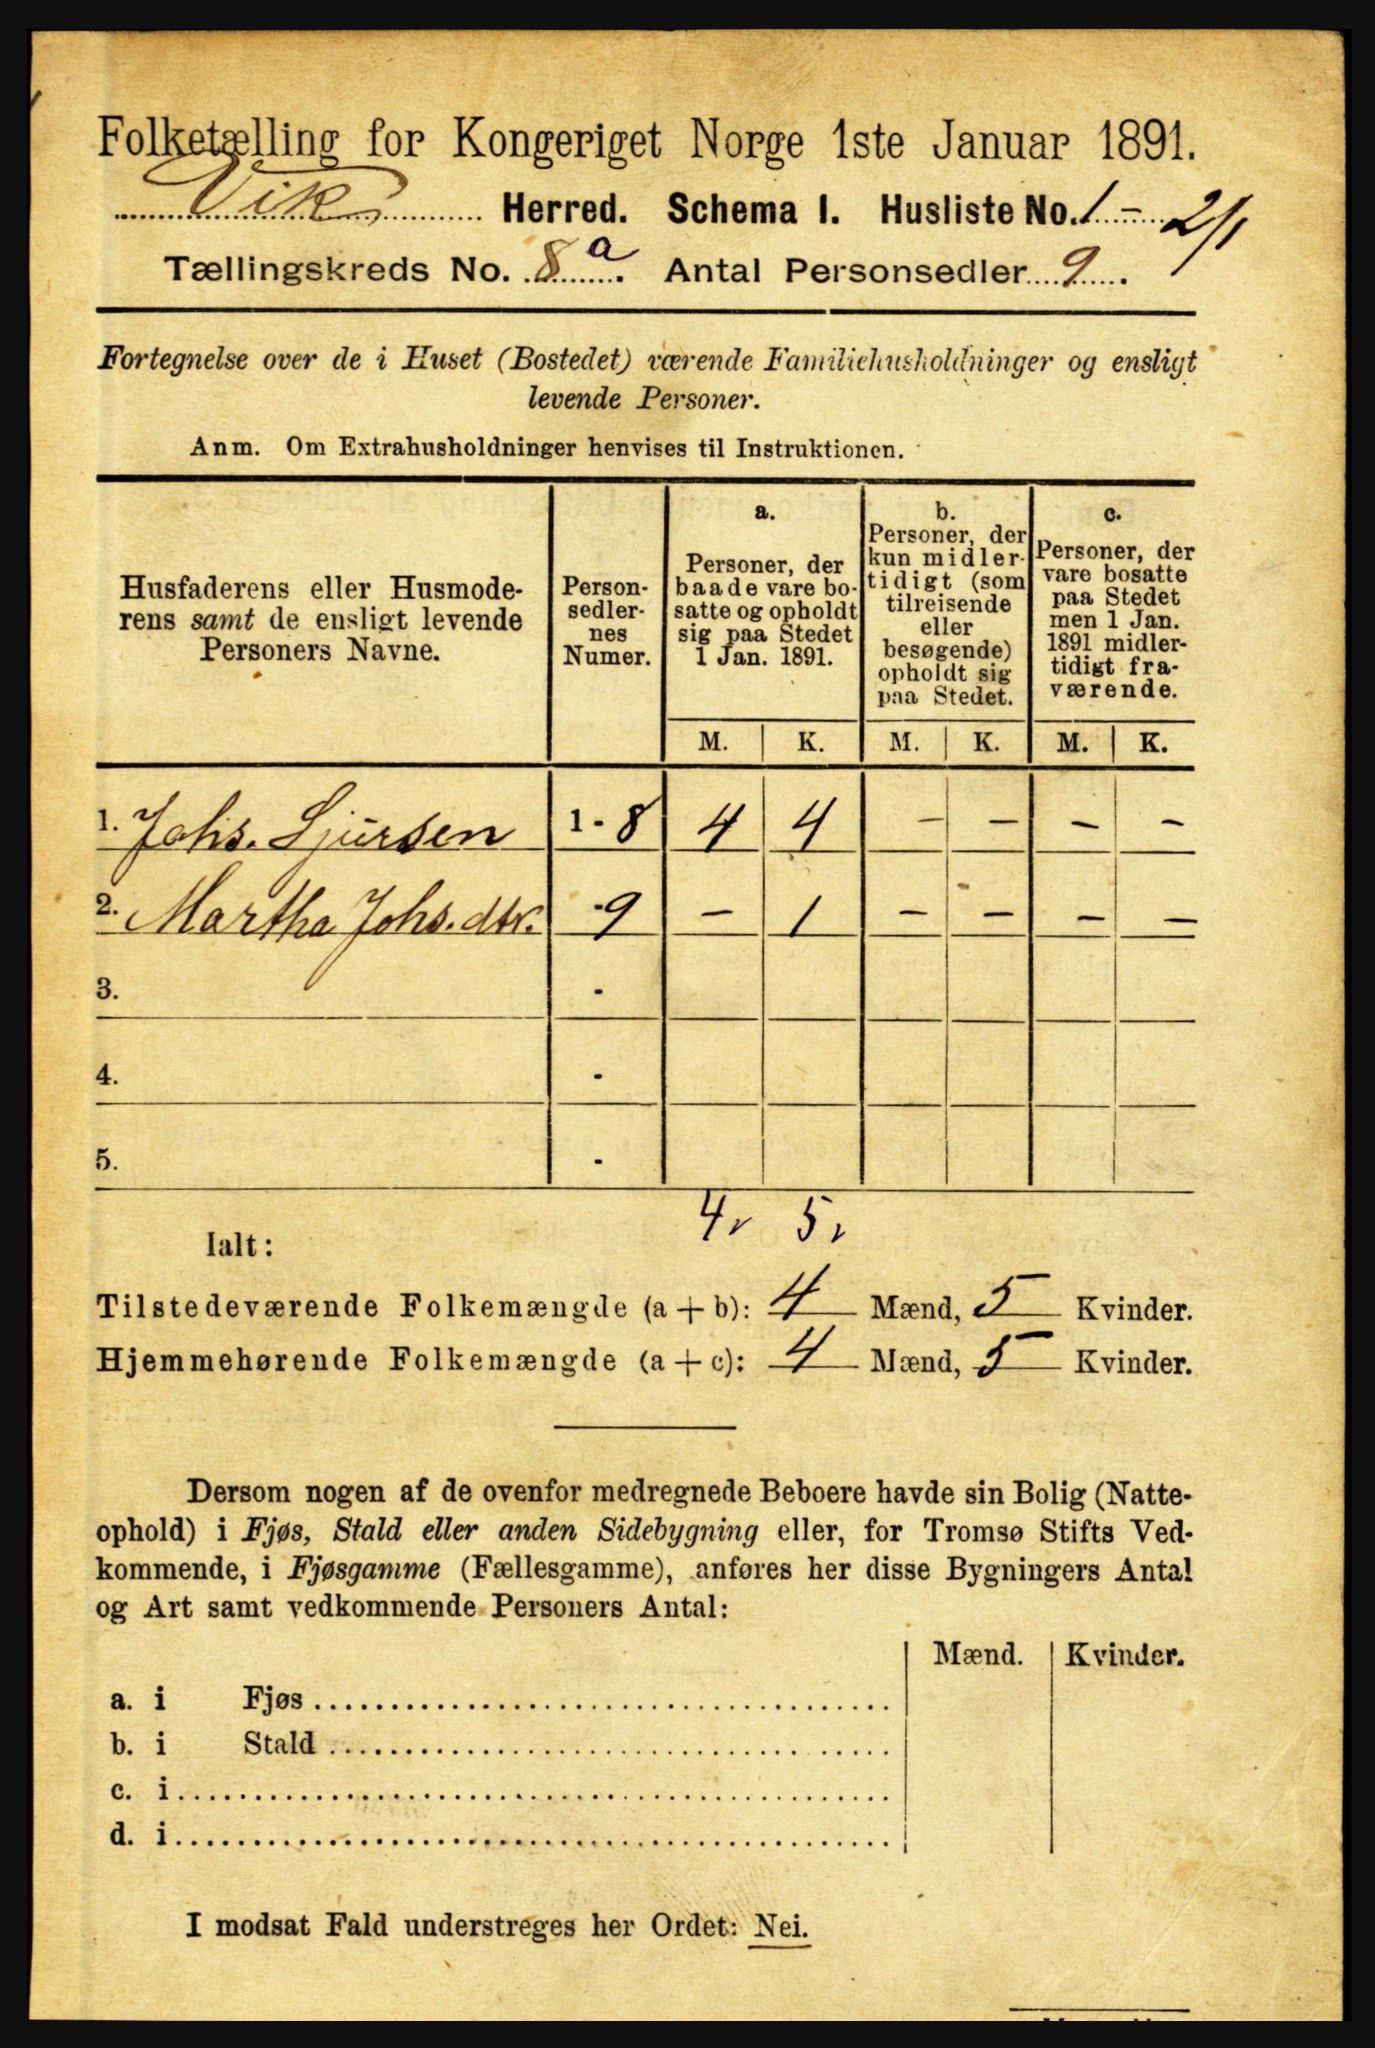 Folketælling for Kongeriget Norge 1ste Januar 1891.
Vik Herred. Schema I. Husliste No. 1 - 2/1
Tællingskreds No. 8 a. Antal Personsedler 9.
Fortegnelse over de i Huset (Bostedet) værende Familiehusholdninger og ensligt
levende Personer.
Anm. Om Extrahusholdninger henvises til Instruktionen.
Husfaderens eller Husmode-
rens samt de ensligt levende
Personers Navne.
Person-
sedler-
nes
Numer.
a.
Personer, der
baade vare bo-
satte og opholdt
sig paa Stedet
1 Jan. 1891.
b.
Personer, der
kun midler-
tidigt (som
tilreisende
eller
besøgende)
opholdt sig
paa Stedet.
c.
Personer, der
vare bosatte
paa Stedet
men 1 Jan.
1891 midler-
tidigt fra-
værende.
M. K. M. K. M. K.
1. Johs. Sjursen 1 - 8 4 4 - - - -
2. Martha Johs. dtr. - 9 - 1 - - - -
3. -
4. -
5. -
4 5
Ialt:
Tilstedeværende Folkemængde (a + b): 4 Mænd, 5 Kvinder.
Hjemmehørende Folkemængde (a + c): 4 Mænd, 5 Kvinder.
Dersom nogen af de ovenfor medregnede Beboere havde sin Bolig (Natte-
ophold) i Fjøs, Stald eller anden Sidebygning eller, for Tromsø Stifts Ved-
kommende, i Fjøsgamme (Fællesgamme), anføres her disse Bygningers Antal
og Art samt vedkommende Personers Antal:
Mænd. Kvinder.
a. i Fjøs
b. i Stald
c. i
d. i
I modsat Fald understreges her Ordet: Nei.